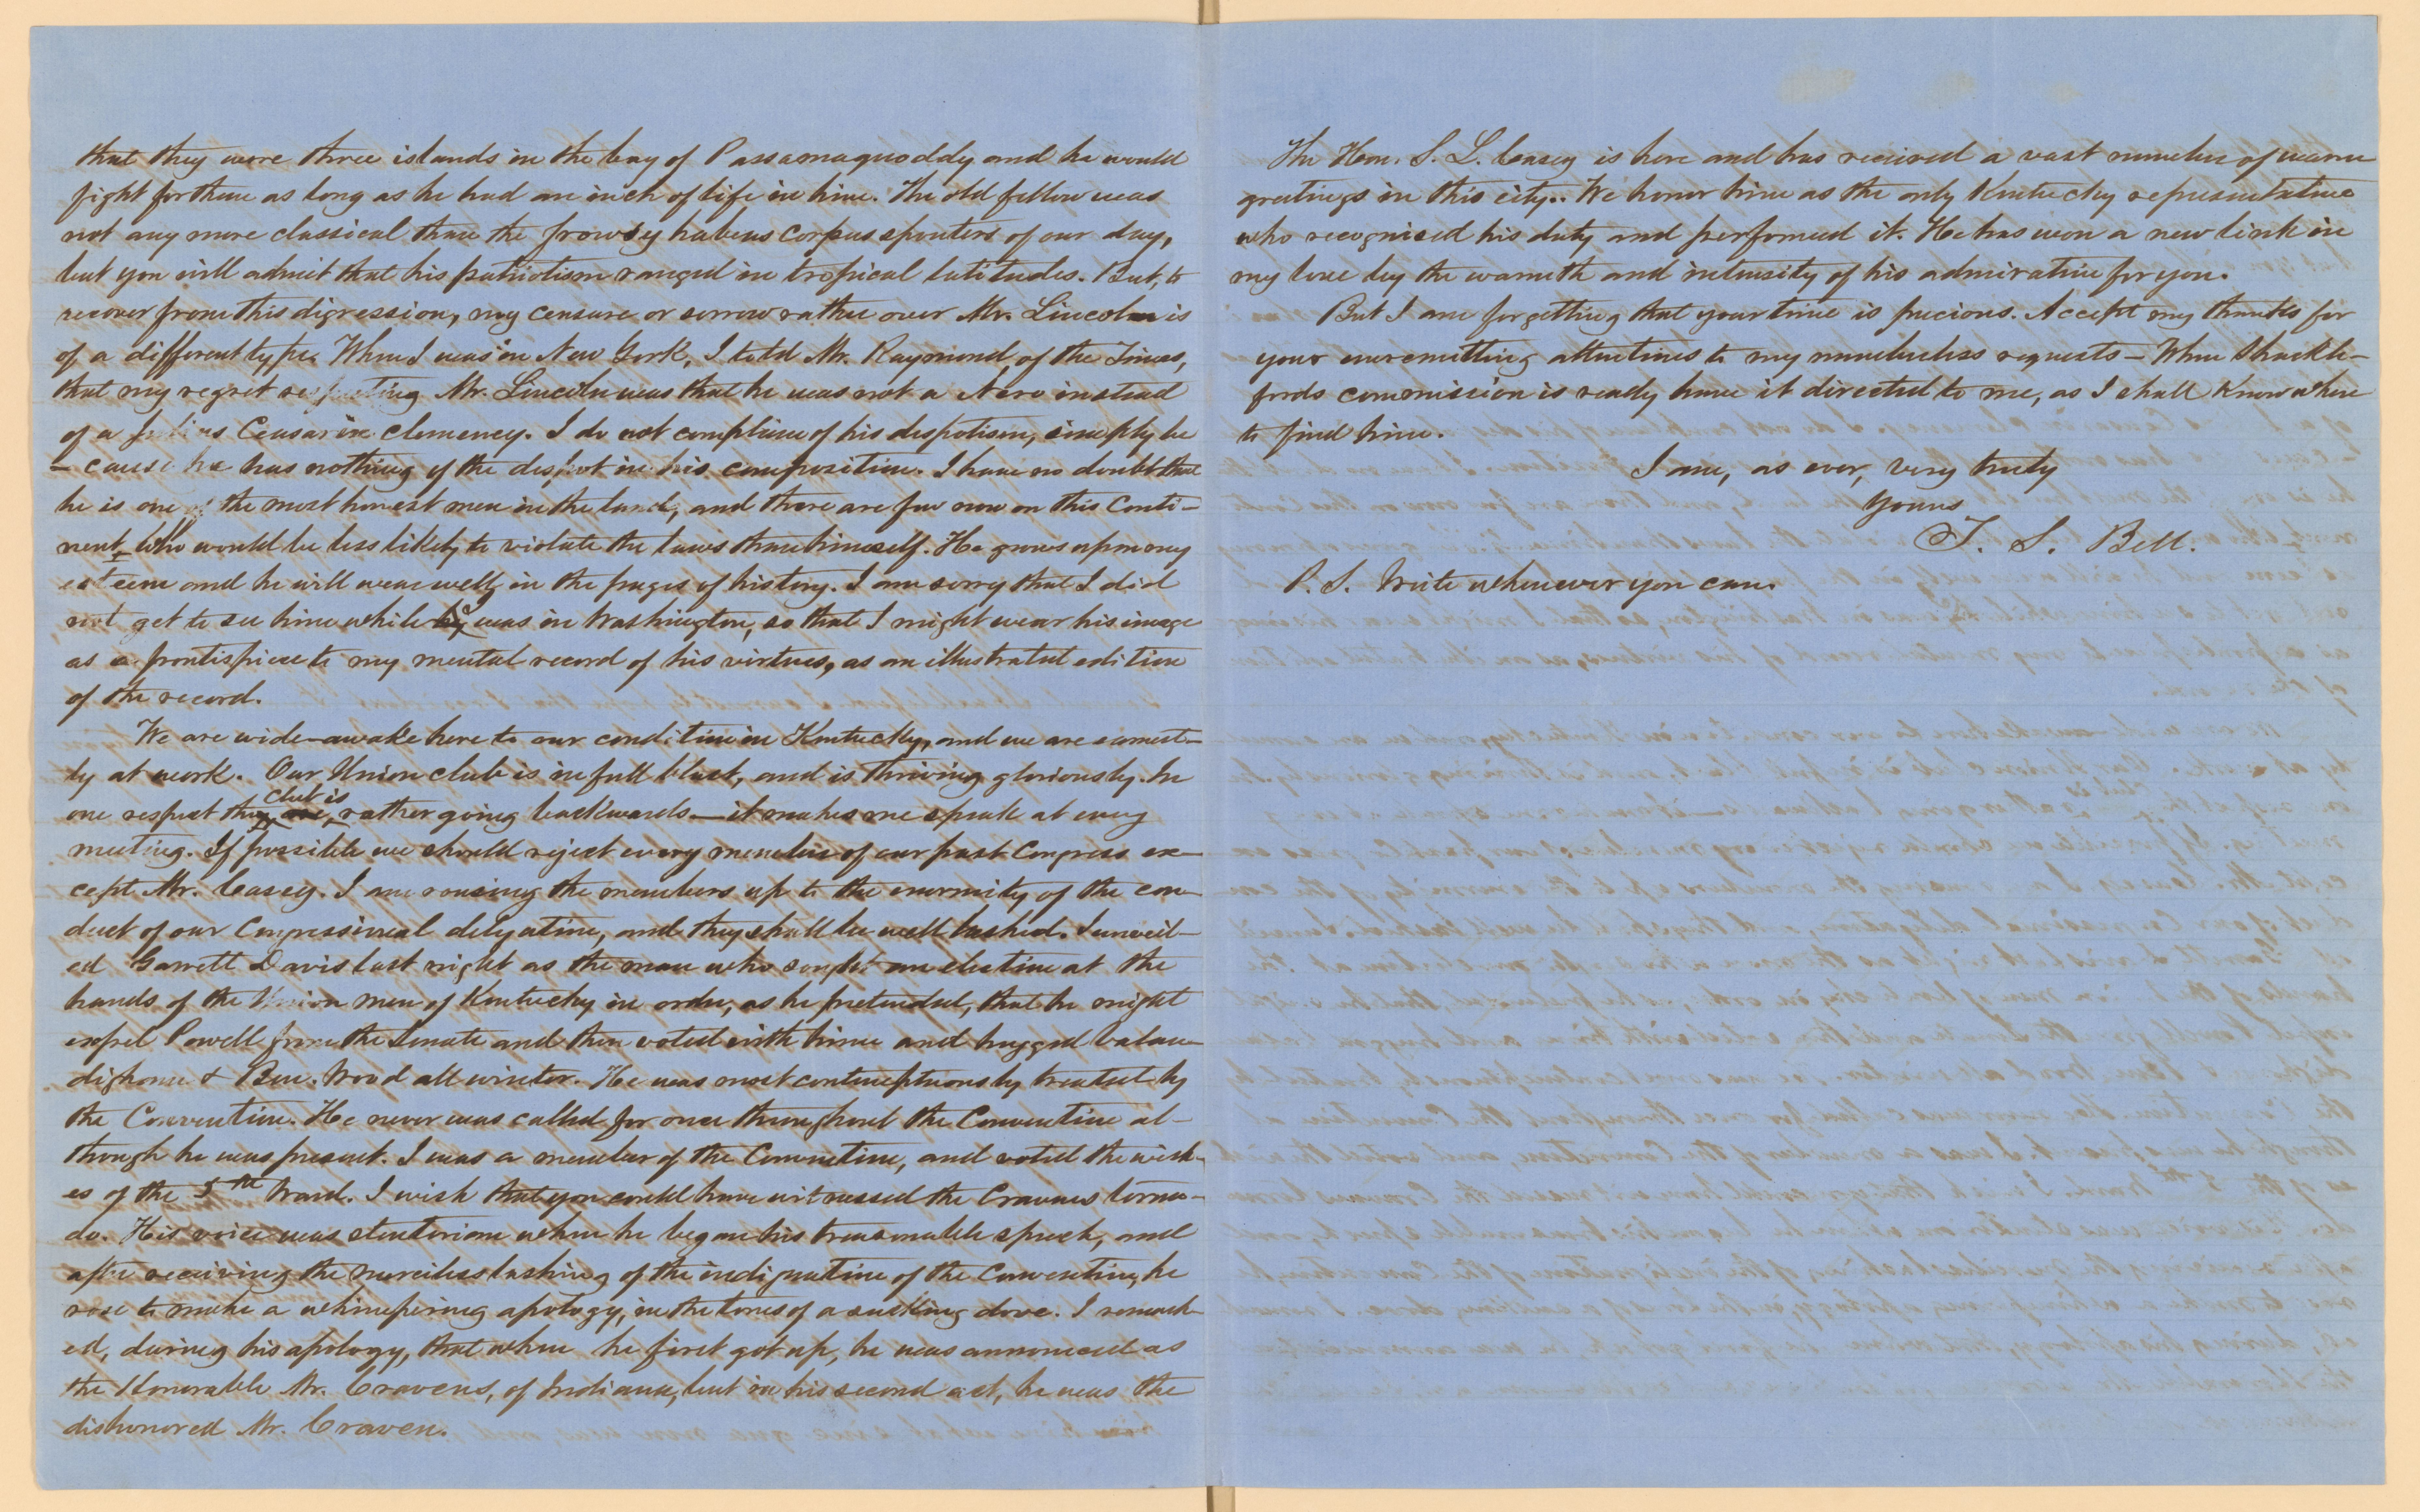 that they were three islands in the bay of Passamaquoddy and he would
fight for them as long as he had an inch of life in him. The old fellow was
not any more classical than the frowsy habeas corpus spouters of our day,
but you will admit that his patriotism ranged in tropical latitudes. But, to
recover from this digression, my censure or sorrow rather over Mr. Lincoln is
of a different type. When I was in New York, I told Mr. Raymond of the Times,
that my regret respecting Mr. Lincoln was that he was not a Nero instead
of a Julius Ceasar in clemency. I do not complain of his despotism, simply be
- cause he has nothing of the despot in his composition. I have no doubt that
he is one of the most honest men in the land, and there are few now on this Conti-
nent who would be less likely to violate the laws than himself. He grows upon my
esteem and he will wear well, in the pages of history. I am sorry that I did
not get to see him while I was in Washington, so that I might wear his image
as a frontispiece to my mental record of his virtues, as an illustrated edition
of the record.
We are wide-awake here to our condition in Kentucky, and we are earnest-
ly at work. Our Union club is in full blast, and is thriving gloriously. In
one respect the club is rather going backwards — it makes me speak at every
meeting. If possible we should reject every member of our past Congress ex-
cept Mr. Casey. I am rousing the members up to the enormity of the con-
duct of our Congressional delegation, and they shall be well lashed. I unveil-
ed Garrett Davis last night as the man who sought an election at the
hands of the Union men of Kentucky in order, as he pretended, that he might
expel Powell from the Senate and then voted with him and hugged Valan-
digham & Ben. Wood all winter. He was most contemptuously treated by
the Convention. He never was called for once throughout the Convention al-
though he was present. I was a member of the Convention, and voted the wish-
es of the 5th Ward. I wish that you could have witnessed the Cravens torna-
do. His voice was stentorian when he began his treasonable speech, and
after receiving the merciless lashing of the indignation of the Convention, he
rose to make a whimpering apology, in the tones of a sucking dove. I remark-
ed, during his apology, that when he first got up, he was announced as
the Honorable Mr. Cravens, of Indiana, but in his second act, he was the
dishonored Mr. Craven.
The Hon. S. L. Casey is here and has received a vast number of warm
greetings in this city.. We honor him as the only Kentucky representative
who recognised his duty and performed it. He has won a new link in
my love by the warmth and intensity of his admiration for you.
But I am forgetting that your time is precious. Accept my thanks for
your unremitting attentions to my numberless requests — When Shackle-
fords commission is ready have it directed to me, as I shall know where
to find him.
I am, as ever, very truly
Yours
T. S. Bell.
P. S. Write whenever you can.